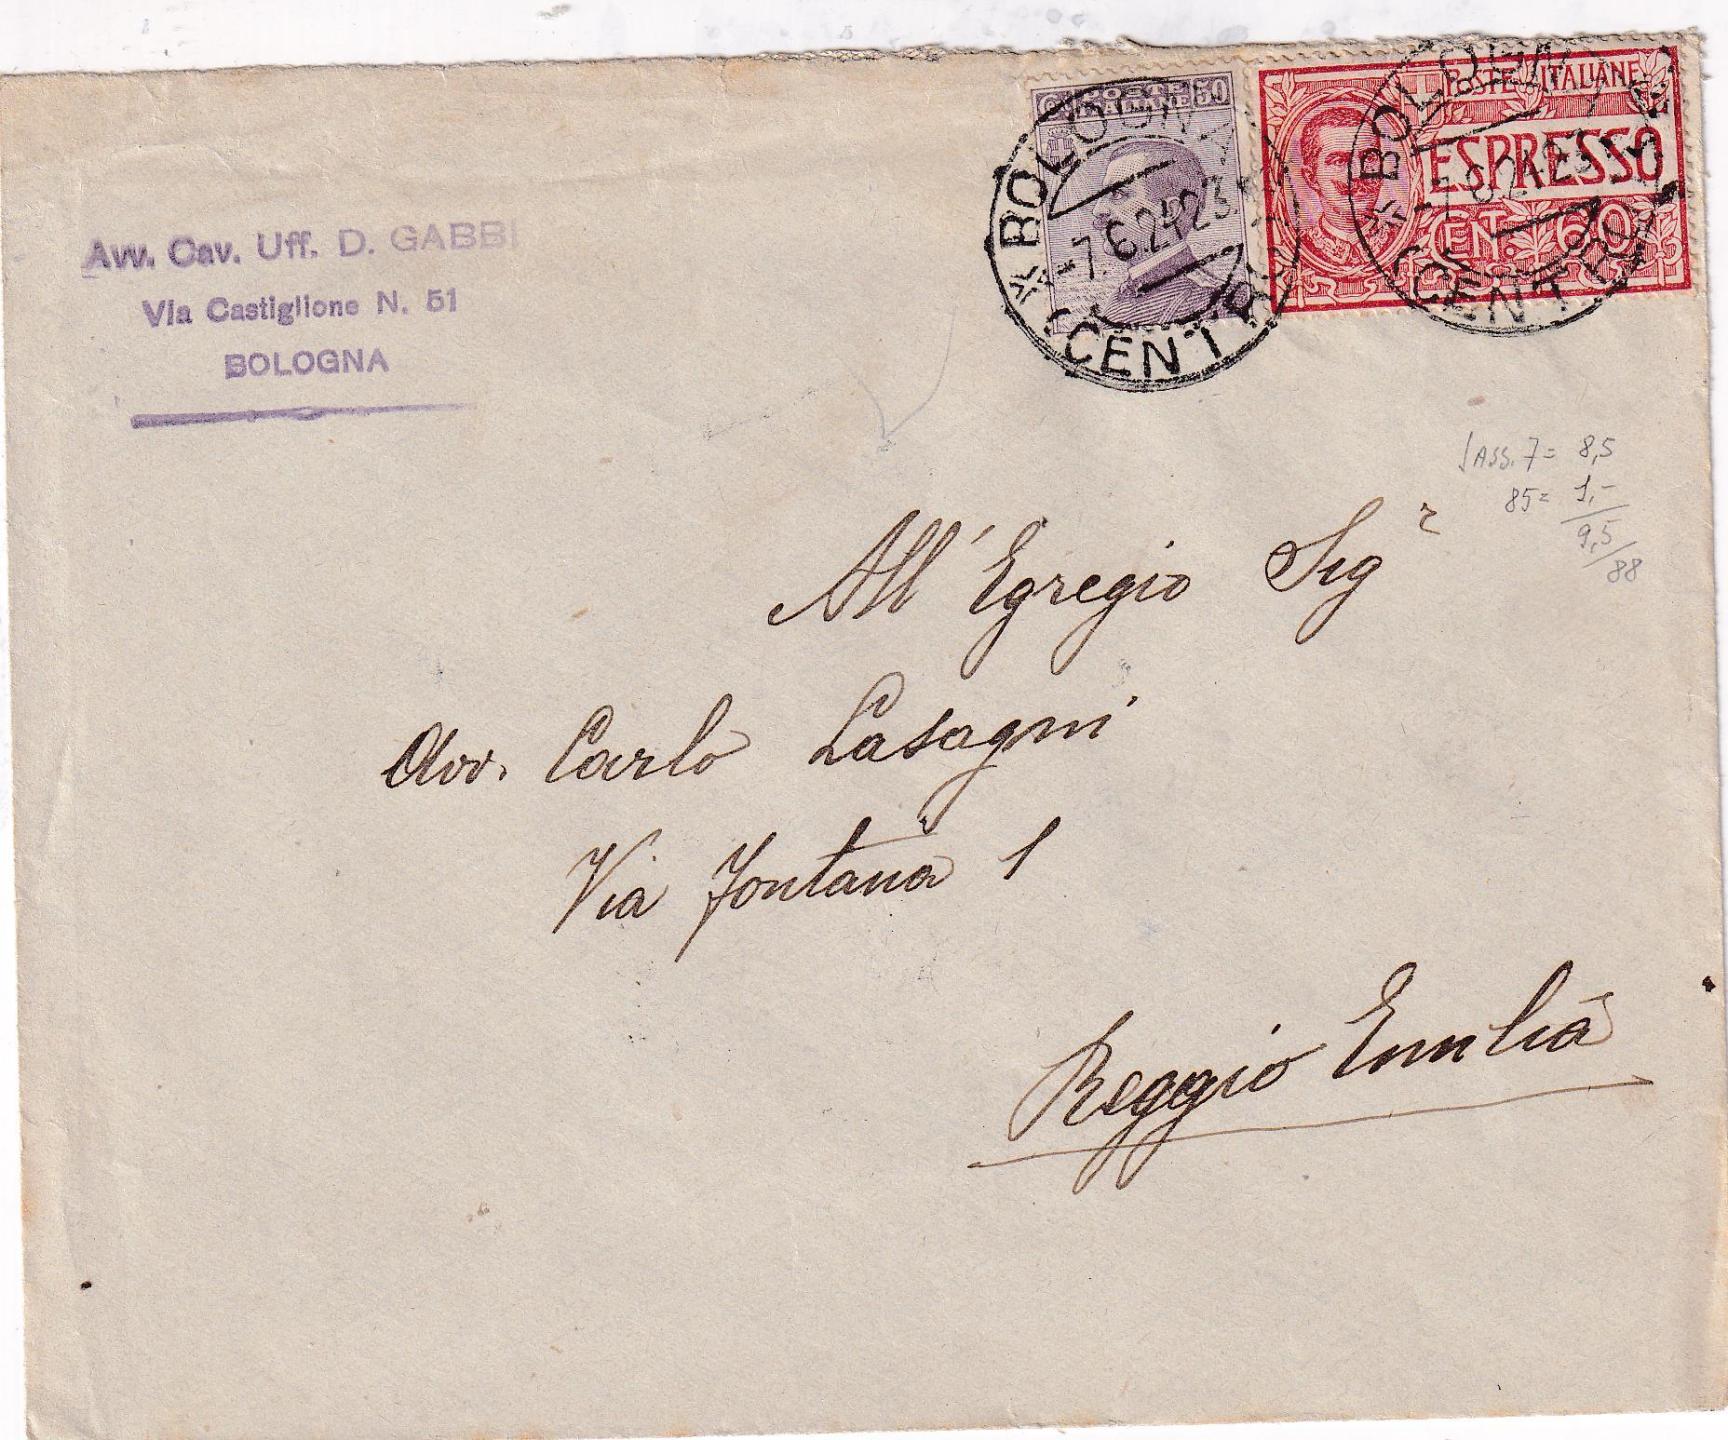 Avv. Cav. Uff. D. GABBI
Via Castiglione N. 51
BOLOGNA
POSTE ITALIANE
50
BOLOGNA
-7.6.24 23
CENTRO
POSTE ITALIANE
ESPRESSO
CENT. 60
BOLOGNA
CENTRO
SASS. 7 = 8,5
85 = 1,-
9,5
/88
All'Egregio Sigr
Avv. Carlo Lasagni
Via Fontana 1
Reggio Emilia